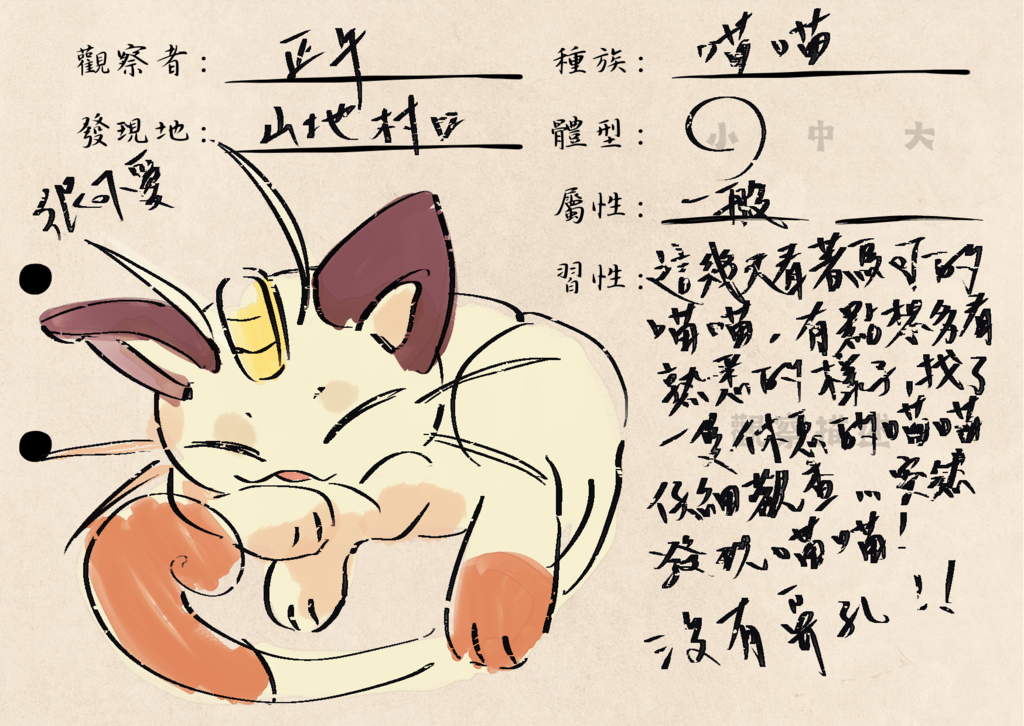 觀察者：正午
種族：喵喵
發現地：山地村口
體型：小 中 大
很可愛
屬性：一般
習性：這幾天看著馬可的
喵喵，有點想多看
熟悉的樣子，找了
一隻休息的喵喵
仔細觀查…突然
發現喵喵！
沒有鼻孔!!